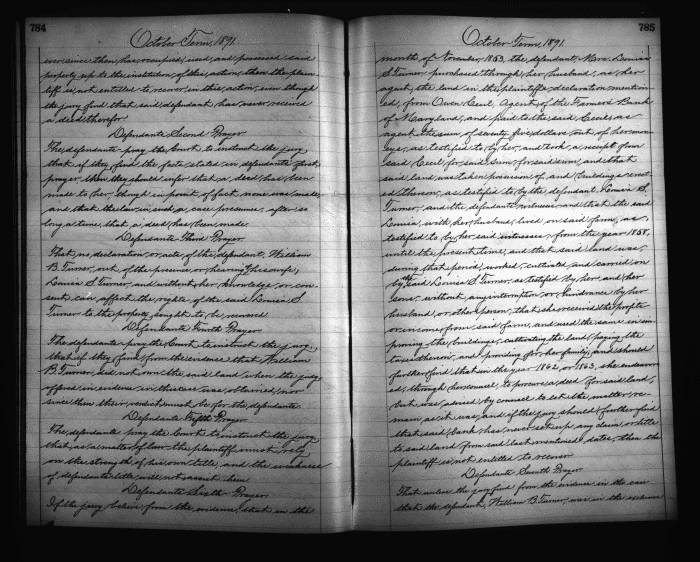 784
October Term, 1891.
ever since then has occupied, used, and possessed said
property up to the institution of this action, then the plain-
tiff is not entitled to recover in this action, even though
the jury find that said defendant has never received
a deed therefor
Defendants Second Prayer
The defendants pray the Court to instruct the jury,
that if they find the facts stated in defendants first
prayer, then they should infer that a deed has been
made to her, though in point of fact none was made,
and that the law in such a case presumes, after so
long a time, that a deed has been made.
Defendants Third Prayer
That no declaration or acts of the defendant, William
B. Turner, out of the presence or hearing of his wife,
Louisa S. Turner, and without her knowledge or con-
sent can affect the rights of the said Louisa S.
Turner to the property sought to be recovered
Defendants Fourth Prayer
The defendants pray the Court to instruct the jury,
that if they find from the evidence that William
B. Turner, did not own the said land when the judg
offered in evidence in this case was obtained, nor
since then their verdict must be for the defendants.
Defendants Fifth Prayer
The defendants pray the Court to instruct the jury
that as a matter of law the plaintiff must rely
on the strength of his own title, and the weakness
of defendants title will not assist him
Defendants Sixth Prayer
If the jury believe from the evidence, that in the
785
October Term, 1891.
month of November, 1853, the defendant, Mrs. Louisa
S. Turner purchased through her husband, as her
agent, the land in the plaintiffs declaration mention-
ed, from Owen Cecil, Agent of the Farmers Bank
of Maryland, and paid to the said Cecil, as
agent the sum of seventy five dollars out of her mon-
ey, as testified to by her, and took a receipt from
said Cecil, for said sum, and that
said land was taken possession of and buildings erect-
ed thereon, as testified to by the defendant, Louisa S.
Turner, and the defendants witnesses and that the said
Louisa, with her husband, lived on said farm, as
testified to by her said witnesses from the year 1858,
until the present time, and that said land was,
during that period, worked, cultivated and carried on
by the said Louisa S. Turner, as testified by her and her
sons, without any interruption or hindrance by her
husband or other person, that she received the profits
or income from said farm, and used the same in im-
proving the buildings, cultivating the land, paying the
taxes thereon, and providing for her family, and should
further find that in the year 1862 or 1863, she endeavor-
ed, through her counsel, to procure a deed for said land,
but was advised by counsel to let the matter re-
main as it was, and if the jury should further find
that said Bank has never set up any claim or title
to said land from said last mentioned date, then the
plaintiff is not entitled to recover
Defendants Seventh Prayer
That unless the jury find from the evidence in the case
that the defendant, William B. Turner, was in the exclusive